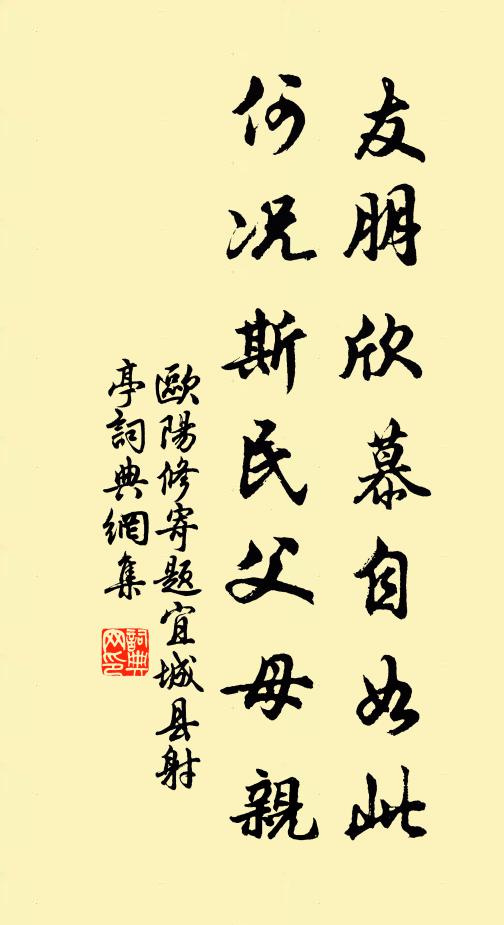 友朋欣慕自如此
何况斯民父母親
歐陽修寄题宜城县射
亭詞典網集
詞典网印